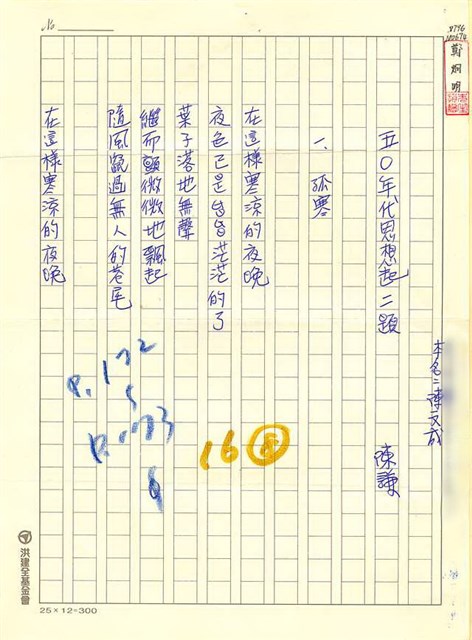 No
鄭烱明
本名：陳文成
五〇年代思想起二題
陳謙
一、孤寒
在這樣寒涼的夜晚
夜色已是皆皆茫茫的了
葉子落地無聲
繼而顫微微地飄起
隨風竄過無人的巷尾
在這樣寒涼的夜晚
P.172
P.173
16
洪建全基金會
25×12=300